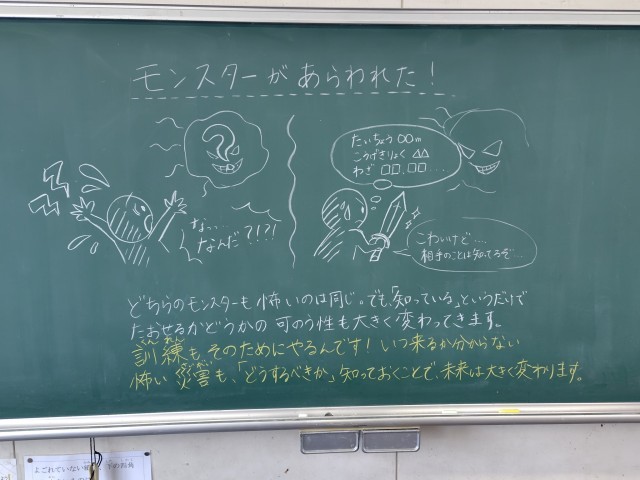 モンスターがあらわれた!
?
なっ…
なんだ?!?!
たいちょう〇〇m
こうげきりょく△△
わざ□□,□□....
こわいけど....
相手のことは知ってるぞ…
どちらのモンスターも怖いのは同じ。でも「知っている」というだけで
たおせるかどうかの可のう性も大きく変わってきます。
くんれん
訓練もそのためにやるんです!いつ来るか分からない
さいがい
怖い災害も、「どうするべきか」知っておくことで、未来は大きく変わります。
よごれていない
下の部